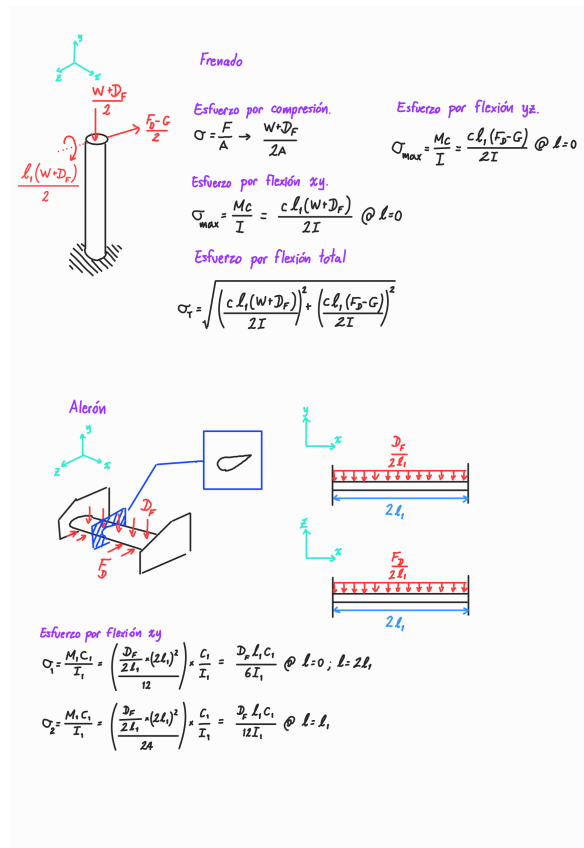 y
z x
Frenado
W+D_F
2
F_D-G
2
l₁(W+D_F)
2
Esfuerzo por compresión.
σ = F/A → W+D_F/2A
Esfuerzo por flexión yz.
σ_max = Mc/I = c l₁(F_D-G)/2I @ l=0
Esfuerzo por flexión xy.
σ_max = Mc/I = c l₁(W+D_F)/2I @ l=0
Esfuerzo por flexión total
σ_T = √((c l₁(W+D_F)/2I)² + (c l₁(F_D-G)/2I)²)
Alerón
y
z x
D_F
F_D
y
x
D_F
2l₁
2l₁
z
x
F_D
2l₁
2l₁
Esfuerzo por flexión xy
σ₁ = M₁C₁/I₁ = (D_F/2l₁ × (2l₁)²/12) × C₁/I₁ = D_F l₁C₁/6I₁ @ l=0; l=2l₁
σ₂ = M₁C₁/I₁ = (D_F/2l₁ × (2l₁)²/24) × C₁/I₁ = D_F l₁C₁/12I₁ @ l=l₁